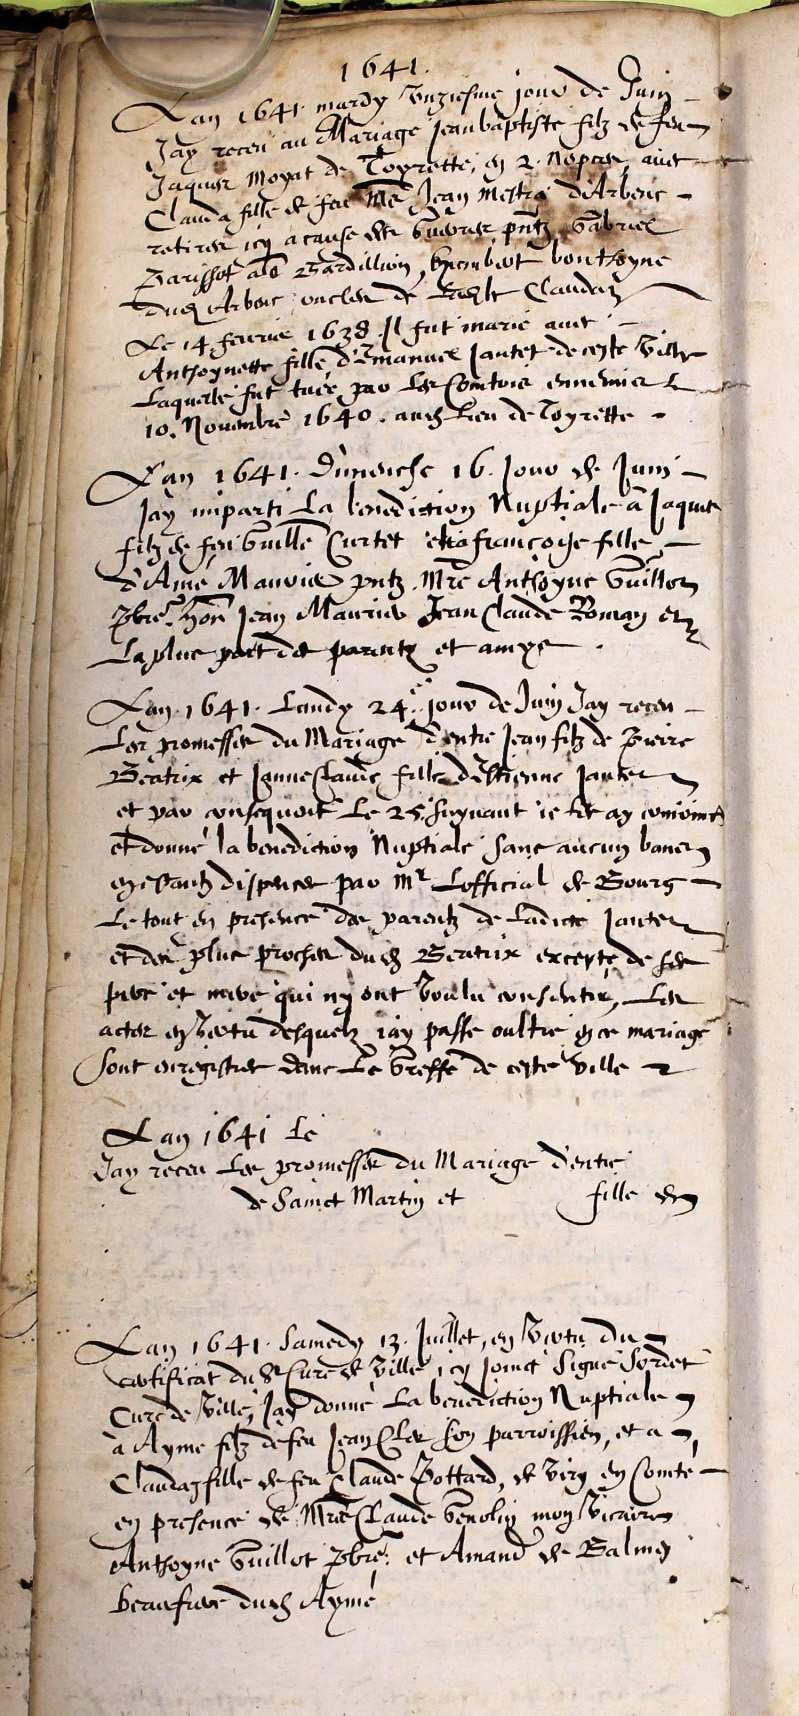 1641.
Lan 1641. mardy unziesme jour de Juin
Jay receu au Mariage Jeanbaptiste filz de feu
Jaques Moyat de Toyrette, en 2. nopces, avec
Clauda fille de feu Me Jean Mestra d'Arbenc
retires icy a cause des guerres pntz Gabriel
Parissot als Bardillion, Humbert bonthoyne
dud Arbenc oncles de lade Clauda
Le 14 febvrier 1638. Il fut marié avec
Anthoynette fille d'Emanuel Jantet de ceste Ville
Laquelle fut tuée par les Comtois ennemis le
10. Novembre 1640. aud Lieu de Toyrette.
Lan 1641. Dimenche 16. jour de Juin
Jay imparti la benediction Nuptiale a Jaques
filz de feu Guille Curtet et a francoise fille
d'Amé Maurier pntz Mre Anthoyne Guillot
Pbre. hon Jean Maurier Jean Claude Roman et
la plus part des parentz et amys.
Lan. 1641. Lundy 24e. jour de Juin Jay receu
Les promesses du Mariage d'entre Jean filz de Pierre
Beatrix et JanneClaude fille d'Estienne Jantet
et par consequent le 25. suyvant je les ay conjoinct
et donné la benediction Nuptiale sans aucun bancz
en estantz dispences par Mr Lofficial de Bourg
Le tout en presence des parentz de Ladicte Jantet
et des plus proches dud Beatrix excepte de ses
pere et mere qui ny ont voulu consentir, Les
actes en vertu desquelz jay passe oultre en ce mariage
sont enregistres dans Le Greffe de ceste ville
Lan 1641 Le
Jay receu Les promesses du Mariage d'entre
de Sainct Martin et fille de
Lan 1641. Samedy 13. Juillet, en vertu du
certificat du Sr Curé de Ville, icy joinct signé Sordet
Curé de Ville, Jay donné La benediction Nuptiale
à Ayme filz de feu Jean Cler son parroissien, et a
Clauda fille de feu Claude Pottard, de Viry en Comté
en presence de Mre Claude Genolin mon Vicaire
Anthoyne Guillot Pbre. et Amand de Balme
beaufrere dud Aymé